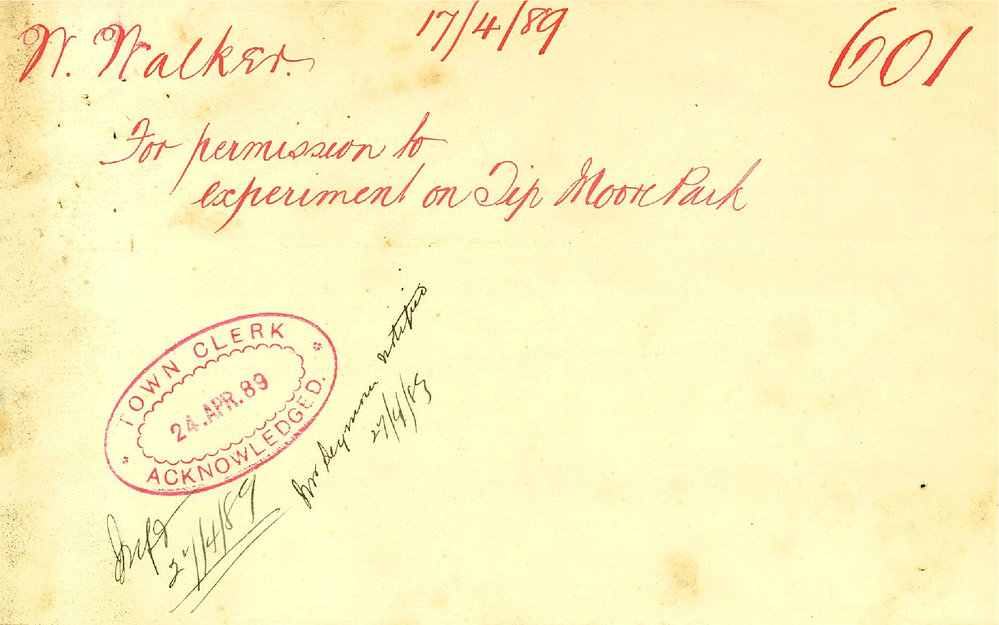 W. Walker.
17/4/89
601
For permission to
experiment on Tip Moore Park
TOWN CLERK
24.APR.89
ACKNOWLEDGED.
Mr Seymour notified
27/4/89
Infd
27/4/89